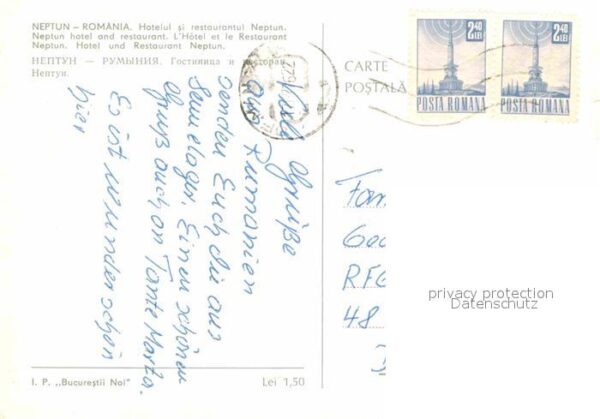 NEPTUN – ROMÂNIA. Hotelul şi restaurantul Neptun.
Neptun hotel and restaurant. L'Hôtel et le Restaurant
Neptun. Hotel und Restaurant Neptun.
НЕПТУН — РУМЫНИЯ. Гостиница и ресторан
Нептун.
CARTE
POŞTALĂ
2,40
LEI
POSTA ROMANA
2,40
LEI
POSTA ROMANA
Viele Grüße
aus Rumänien
senden Euch die aus
Einen schönen
Gruß auch an Tante Marta.
Es ist wunderschön
hier
Fam
Geo
RFG
48
privacy protection
Datenschutz
I. P. „Bucureştii Noi"
Lei 1,50